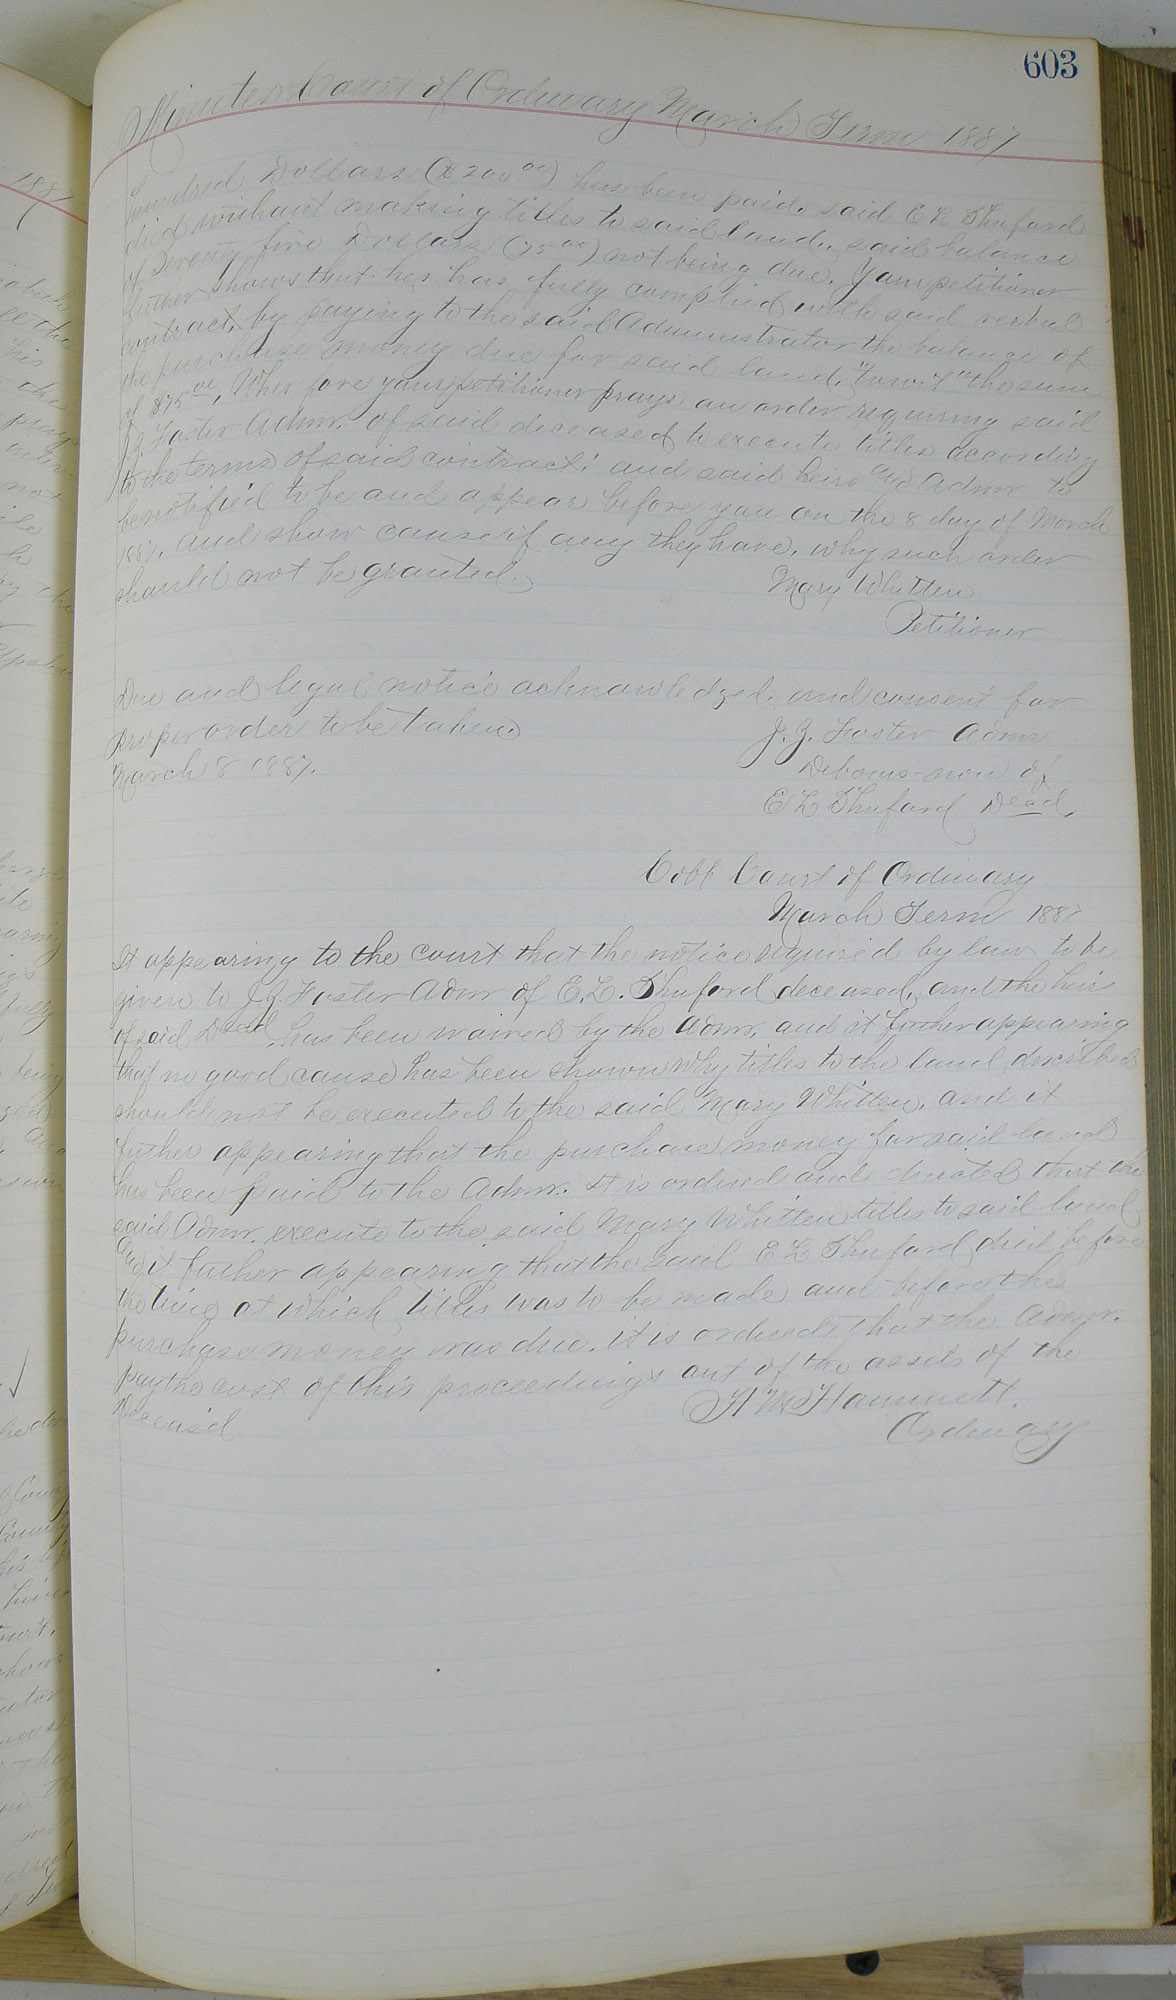 603
Minutes Court of Ordinary March Term 1887
hundred Dollars ($200 00) has been paid. said E L Shuford
died without making titles to said land, said balance
of Seventy five Dollars (75 00) not being due. Your petitioner
futher shows that her has fully complied with said verbal
contract, by paying to the said Administrator the balance of
the purchase money due for said land, "towit" the sum
of $75 00, Wherefore your petitioner prays an order requiring said
J. J. Foster Admr. of said deceased to execute titles according
to the terms of said contract; and said heirs and Admr to
be notified to be and appear before you on the 8 day of March
1887. and show cause if any they have, why such order
should not be granted.
Mary Whitten
Petitioner
Due and legal notice acknowledged, and consent for
proper order to be taken.
March 8 1887.
J. J. Foster Admr
Debonis-non of
E L Shuford Decd.
Cobb Court of Ordinary
March Term 1887
It appearing to the court that the notice required by law to be
given to J J. Foster Admr of E. L. Shuford deceased, and the heirs
of said Decd. has been waived by the Admr, and it futher appearing
that no good cause has been shown why titles to the land described
should not be executed to the said Mary Whitten, and it
futher appearing that the purchase money for said land
has been paid to the Admr. It is ordered and directed that the
said Admr. execute to the said Mary Whitten titles to said land
and it futher appearing that the said E L Shuford died before
the time at which titles was to be made and before the
purchase money was due. it is ordered that the Admr.
pay the cost of this proceedings out of the assets of the
Deceas'd
H M Hammett.
Ordinary